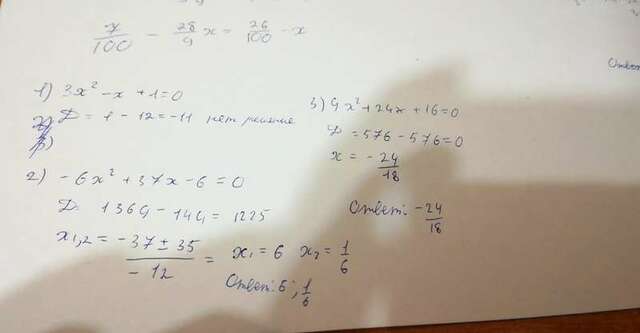 7/100 - 28/9 x = 26/100 - x
Ответ
1) 3x² - x + 1 = 0
D = 1 - 12 = -11 нет решение
2) -6x² + 37x - 6 = 0
D = 1369 - 144 = 1225
x₁,₂ = (-37 ± 35)/(-12) = x₁ = 6 x₂ = 1/6
Ответ: 6 ; 1/6
3) 9x² + 24x + 16 = 0
D = 576 - 576 = 0
x = -24/18
Ответ: -24/18